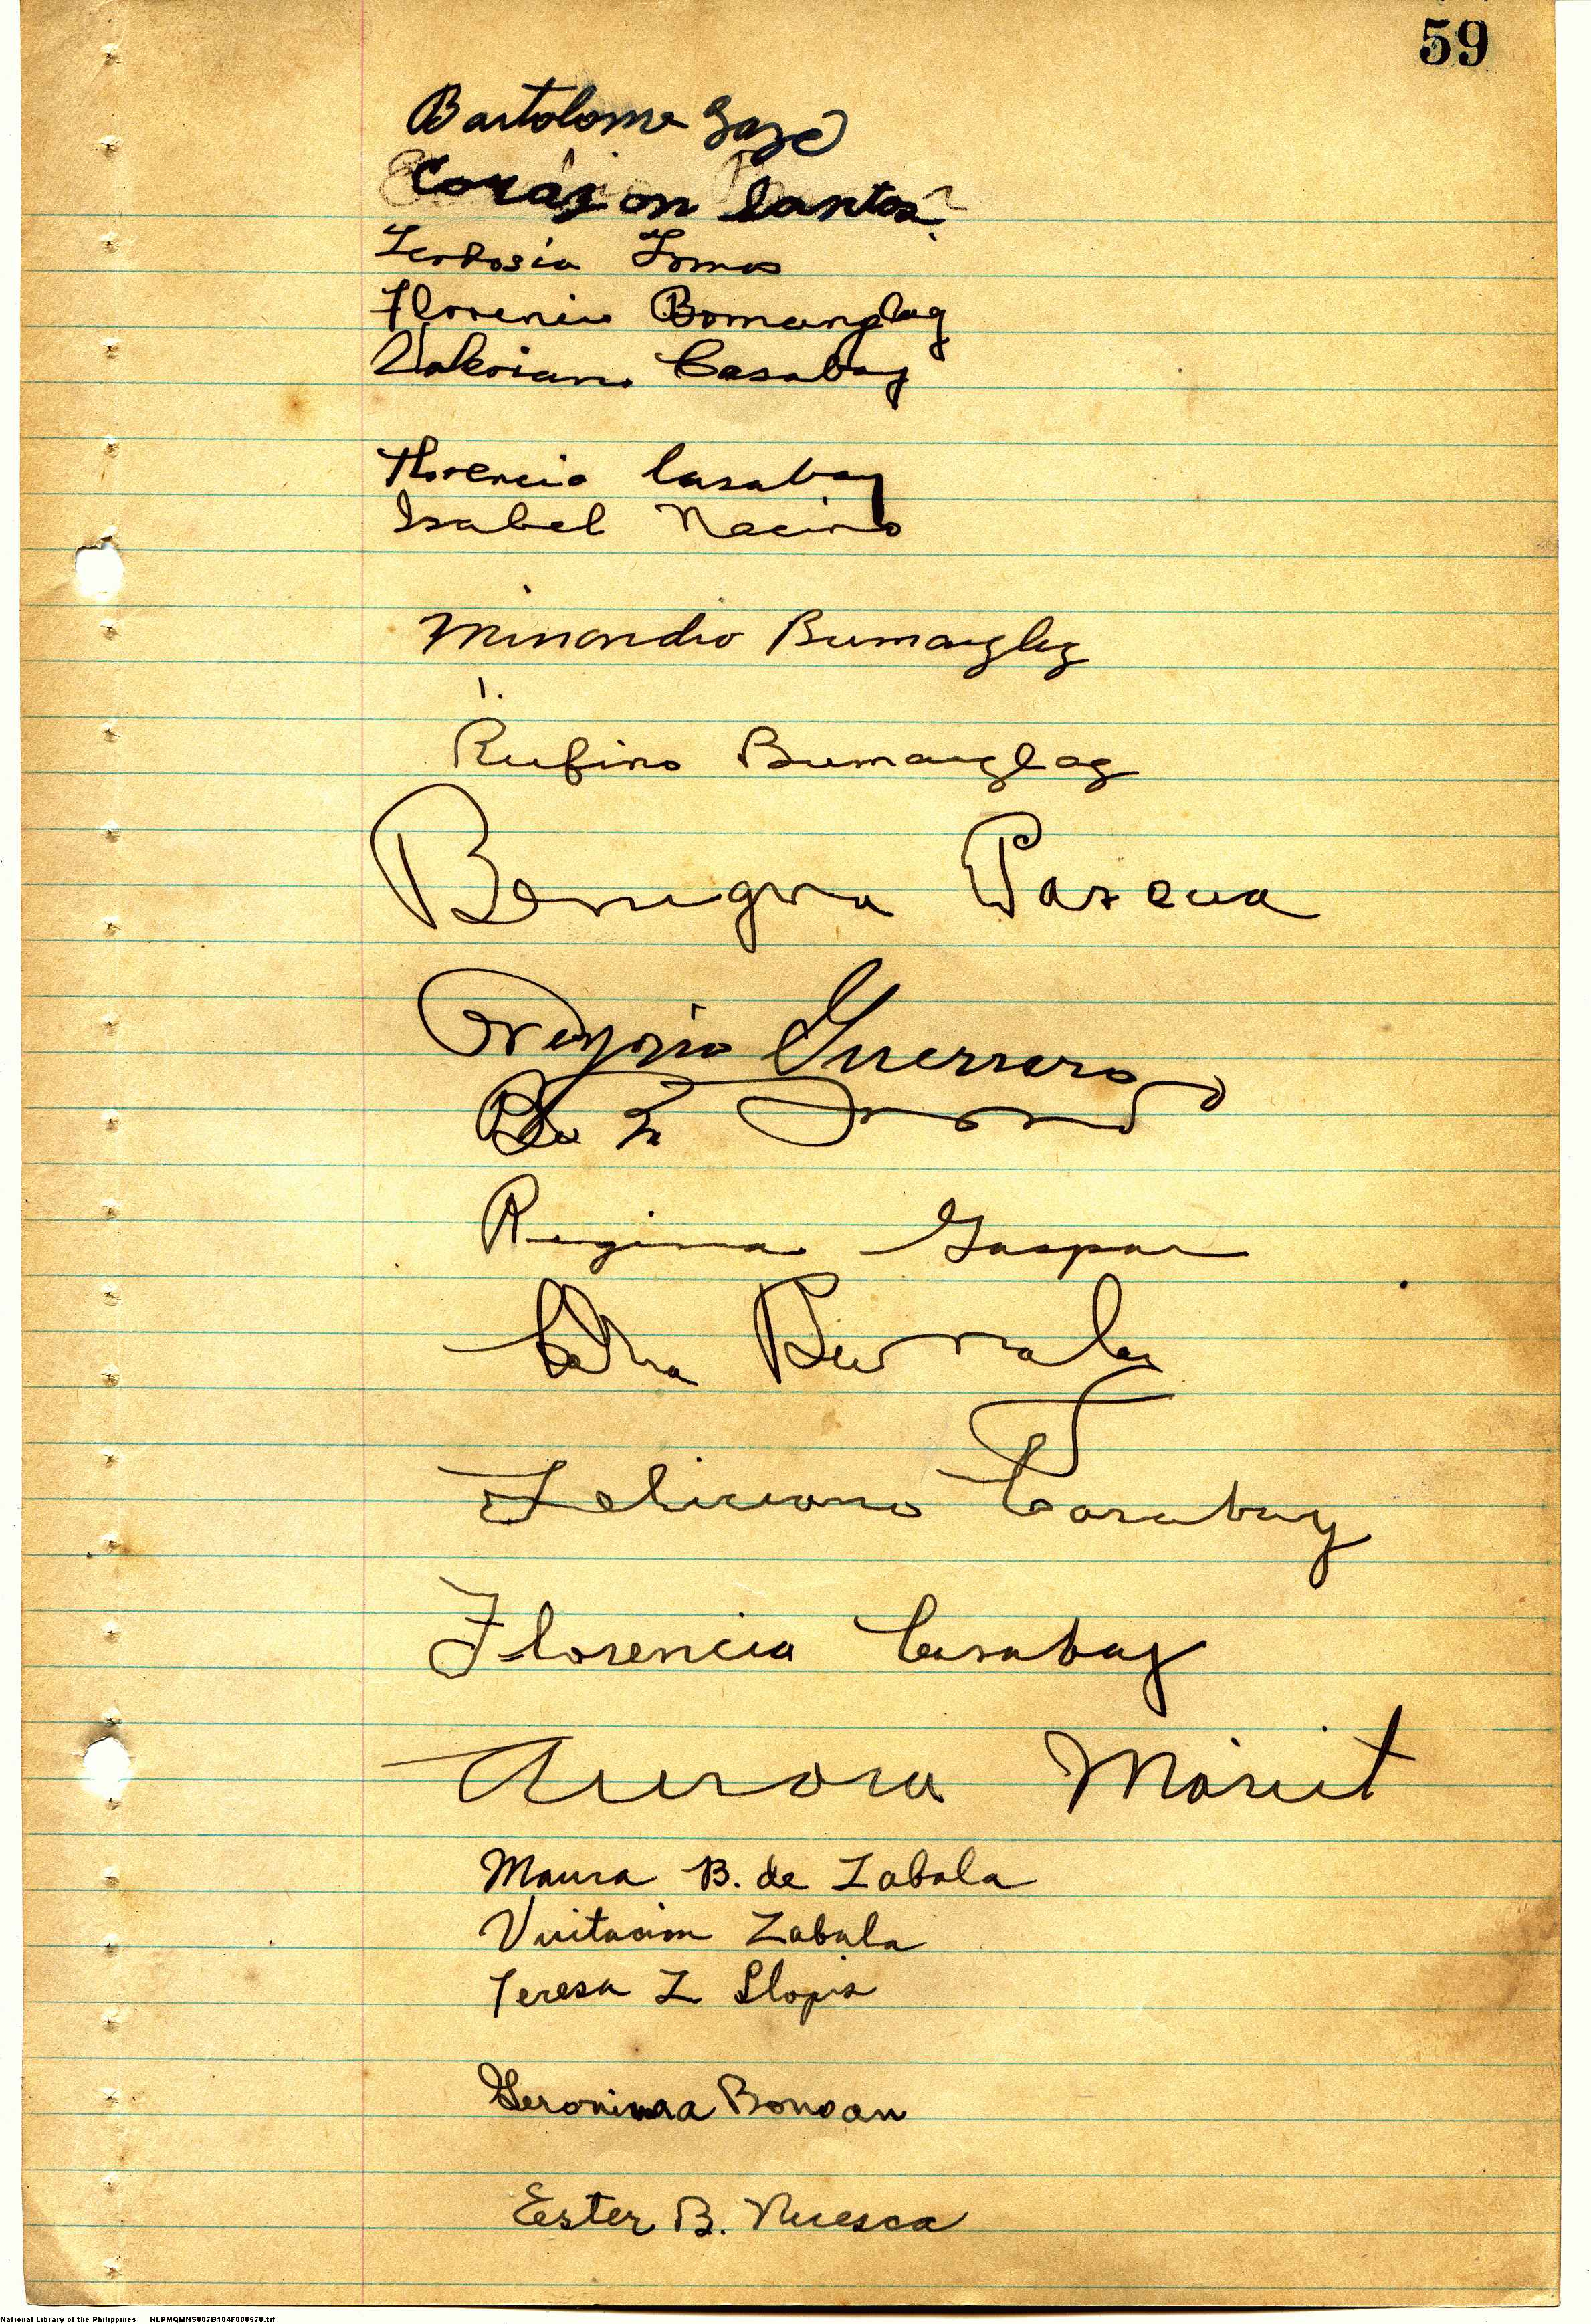 59
Bartolome
Corazon Santos
Teodosia Tomas
Florencio Bomanglag
Valeriano Casabay
Florencio Casabay
Isabel Nacino
Minandro Bumanglag
Rufino Bumanglag
Benigna Pascua
Gregorio Guerrero
Regina Gaspar
Feliciano Casabay
Florencia Casabay
Aurora
Maura B. de Zabala
Visitacion Zabala
Teresa Z. Llopis
Geronima Bonoan
Ester B. Nuesca
National Library of the Philippines NLPMQMNS007B104F000570.tif